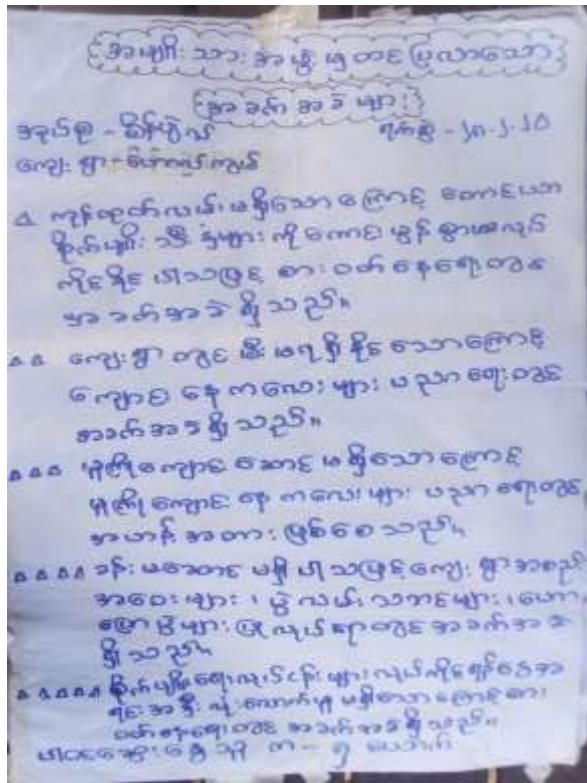 အမျိုးသားအဖွဲ့မှတင်ပြလာသော
အခက်အခဲများ
အုပ်စု - စိန်ပွဲလ် ရက်စွဲ - ၂၈.၂.၂၀
ကျေးရွာ -
Δ ကုန်ထုတ်လမ်းမရှိသောကြောင့် တောင်ယာ
စိုက်ပျိုးသီးနှံများကို ကောင်းမွန်စွာမလုပ်
ကိုင်နိုင်ပါသဖြင့် စားဝတ်နေရေးတွင်
အခက်အခဲရှိသည်။
Δ Δ ကျေးရွာတွင် မီးမရရှိနိုင်သောကြောင့်
ကျောင်းနေကလေးများ ပညာရေးတွင်
အခက်အခဲရှိသည်။
Δ Δ Δ မူကြိုကျောင်းဆောင်မရှိသောကြောင့်
မူကြိုကျောင်းနေကလေးများ ပညာရေးတွင်
အဟန့်အတားဖြစ်စေသည်။
Δ Δ Δ Δ ခန်းမဆောင်မရှိပါသဖြင့် ကျေးရွာအစည်း
အဝေးများ ၊ ပွဲလမ်းသဘင်များ ၊ ဟော
ပြောပွဲများပြုလုပ်ရာတွင် အခက်အခဲ
ရှိသည်။
Δ Δ Δ Δ Δ စိုက်ပျိုးရေးလုပ်ငန်းများလုပ်ကိုင်ရန်ငွေအ
ရင်းအနှီးလုံလောက်မှုမရှိသောကြောင့်စား
ဝတ်နေရေးတွင် အခက်အခဲရှိသည်။
ပါဝင်ဆွေးနွေးသူ က - ၅ ယောက်